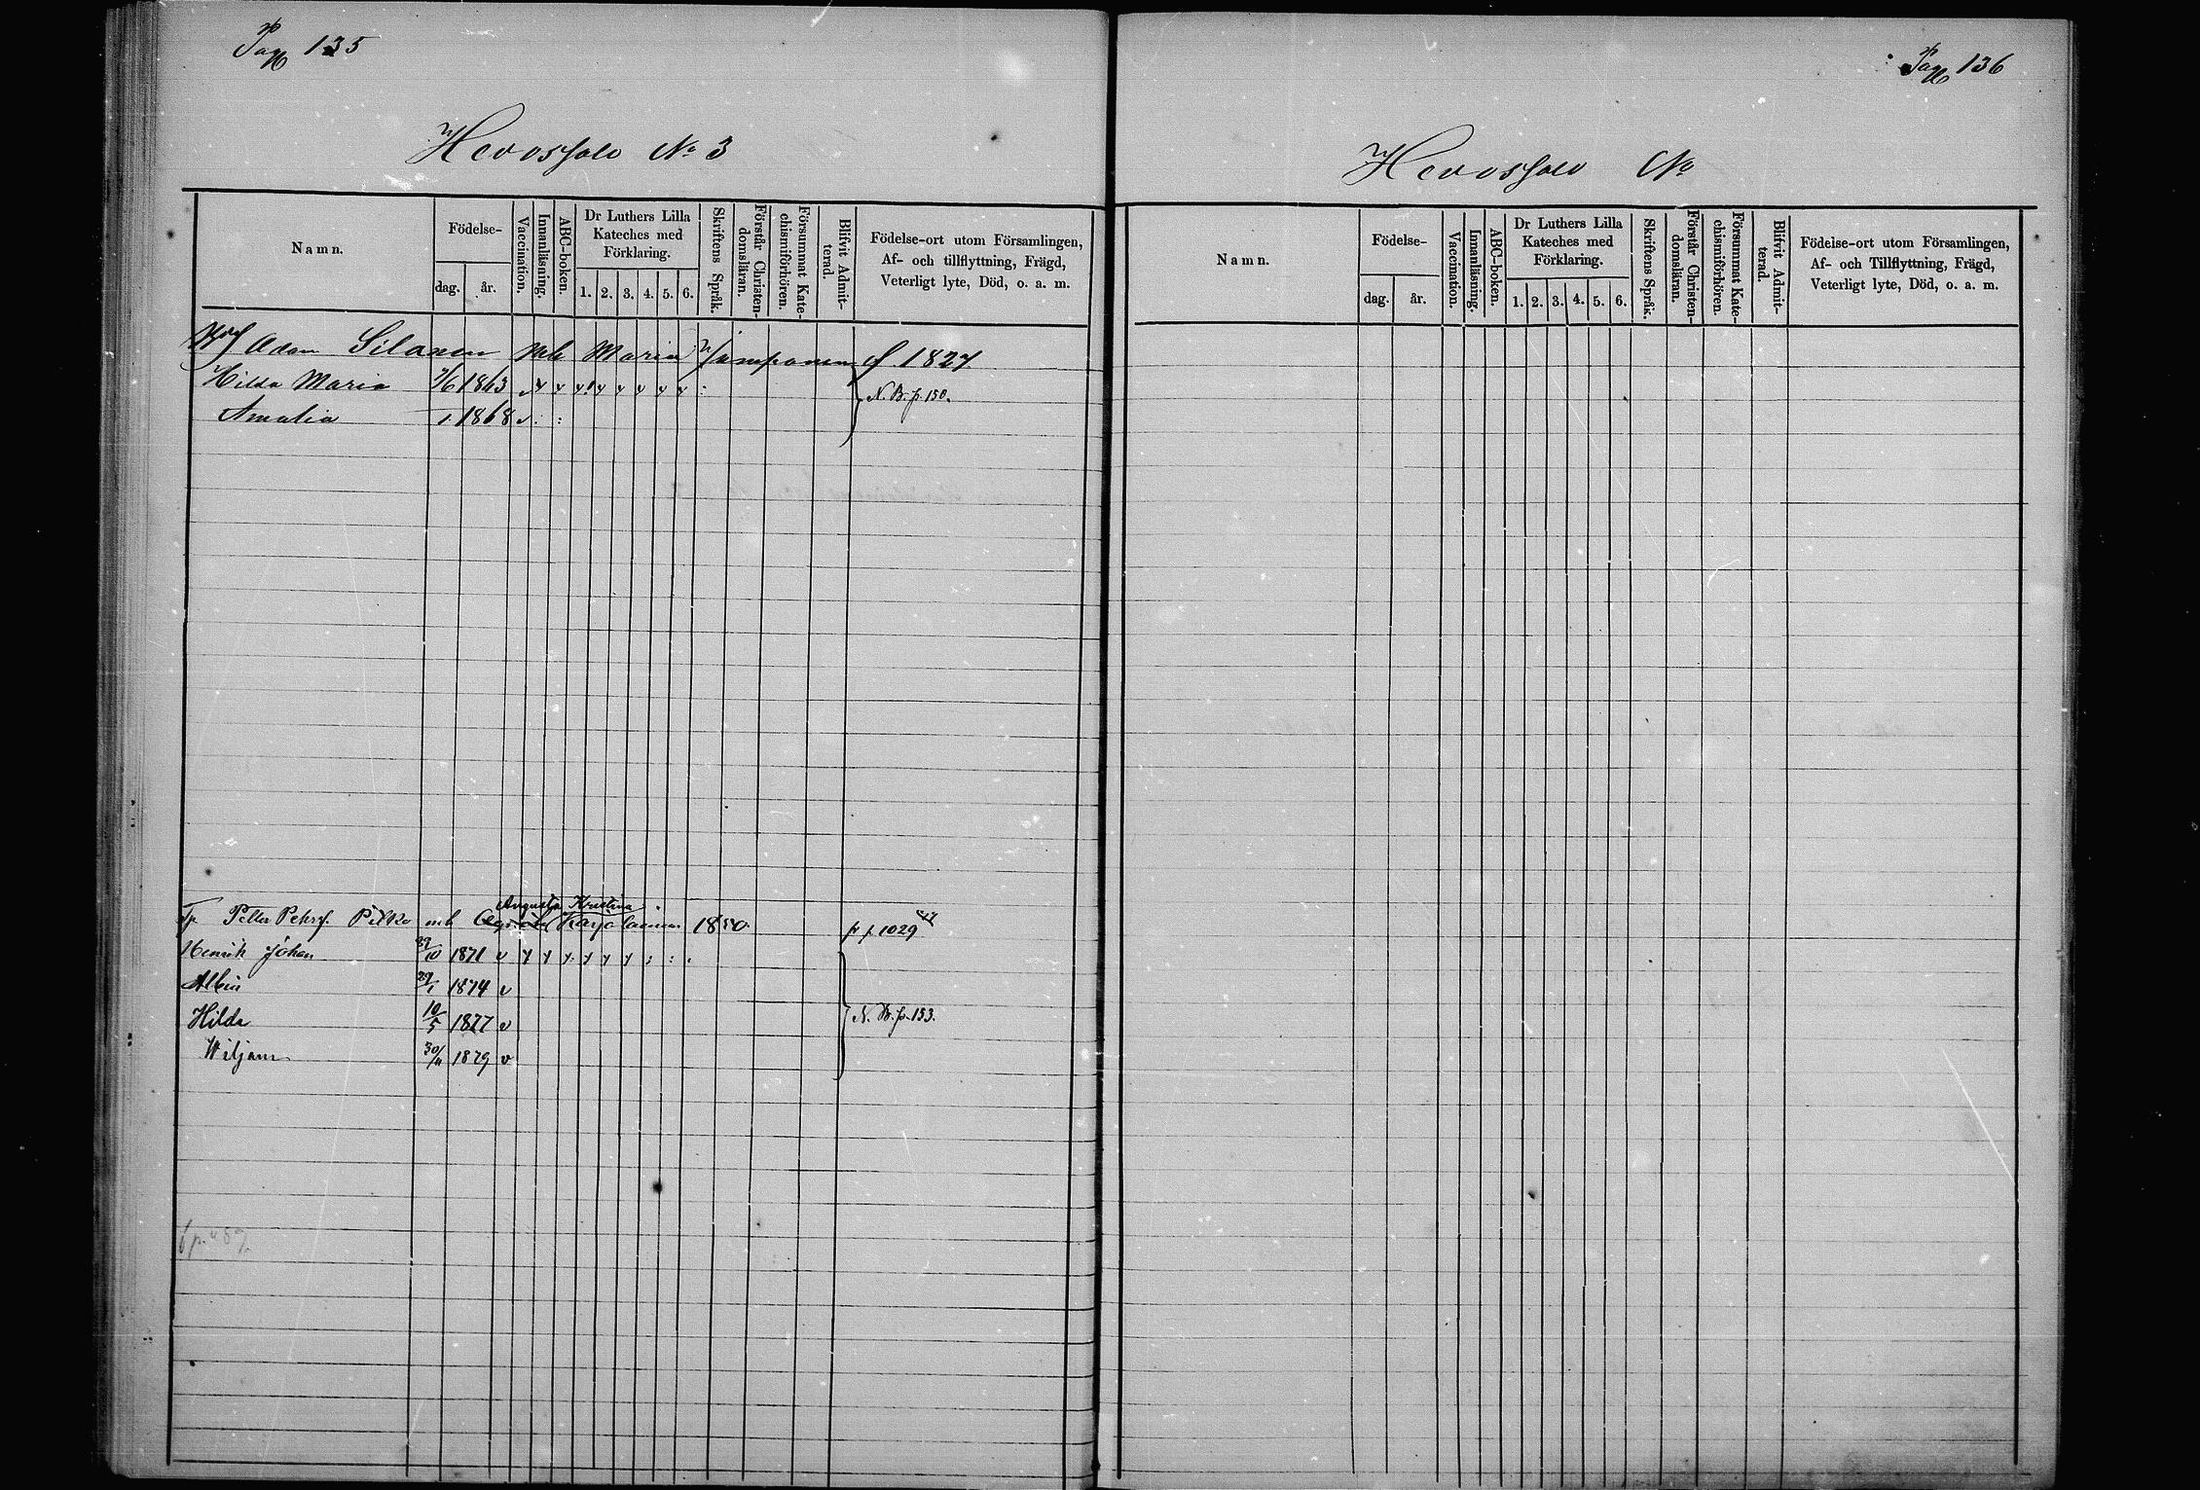 Pag 135
Hevossalo No 3
Namn.
Födelse-
dag.
år.
Vaccination.
Innanläsning.
ABC-boken.
Dr Luthers Lilla
Kateches med
Förklaring.
1. 2. 3. 4. 5. 6.
Skriftens Språk.
Förstår Christen-
domsläran.
Försummat Kate-
chismiförhören.
Blifvit Admit-
terad.
Födelse-ort utom Församlingen,
Af- och tillflyttning, Frägd,
Veterligt lyte, Död, o. a. m.
Adam Silanen mh Maria f. 1827.
Hilda Maria 7/6 1863 v y y y y y y y y :
N. B. p. 150.
Amalia 1868 v : :
Augusta Kristina
Petter Pehrsf. Pilkko mh Karjalainen 1850
p. 1029
Henrik Johan 29/10 1871 v y y y y y y : : .
Albin 29/1 1874 v
Hilda 10/5 1877 v
N. B. p. 153.
Wiljam 30/11 1879 v
Pag 136
Hevossalo No
Namn.
Födelse-
dag.
år.
Vaccination.
Innanläsning.
ABC-boken.
Dr Luthers Lilla
Kateches med
Förklaring.
1. 2. 3. 4. 5. 6.
Skriftens Språk.
Förstår Christen-
domsläran.
Försummat Kate-
chismiförhören.
Blifvit Admit-
terad.
Födelse-ort utom Församlingen,
Af- och Tillflyttning, Frägd,
Veterligt lyte, Död, o. a. m.